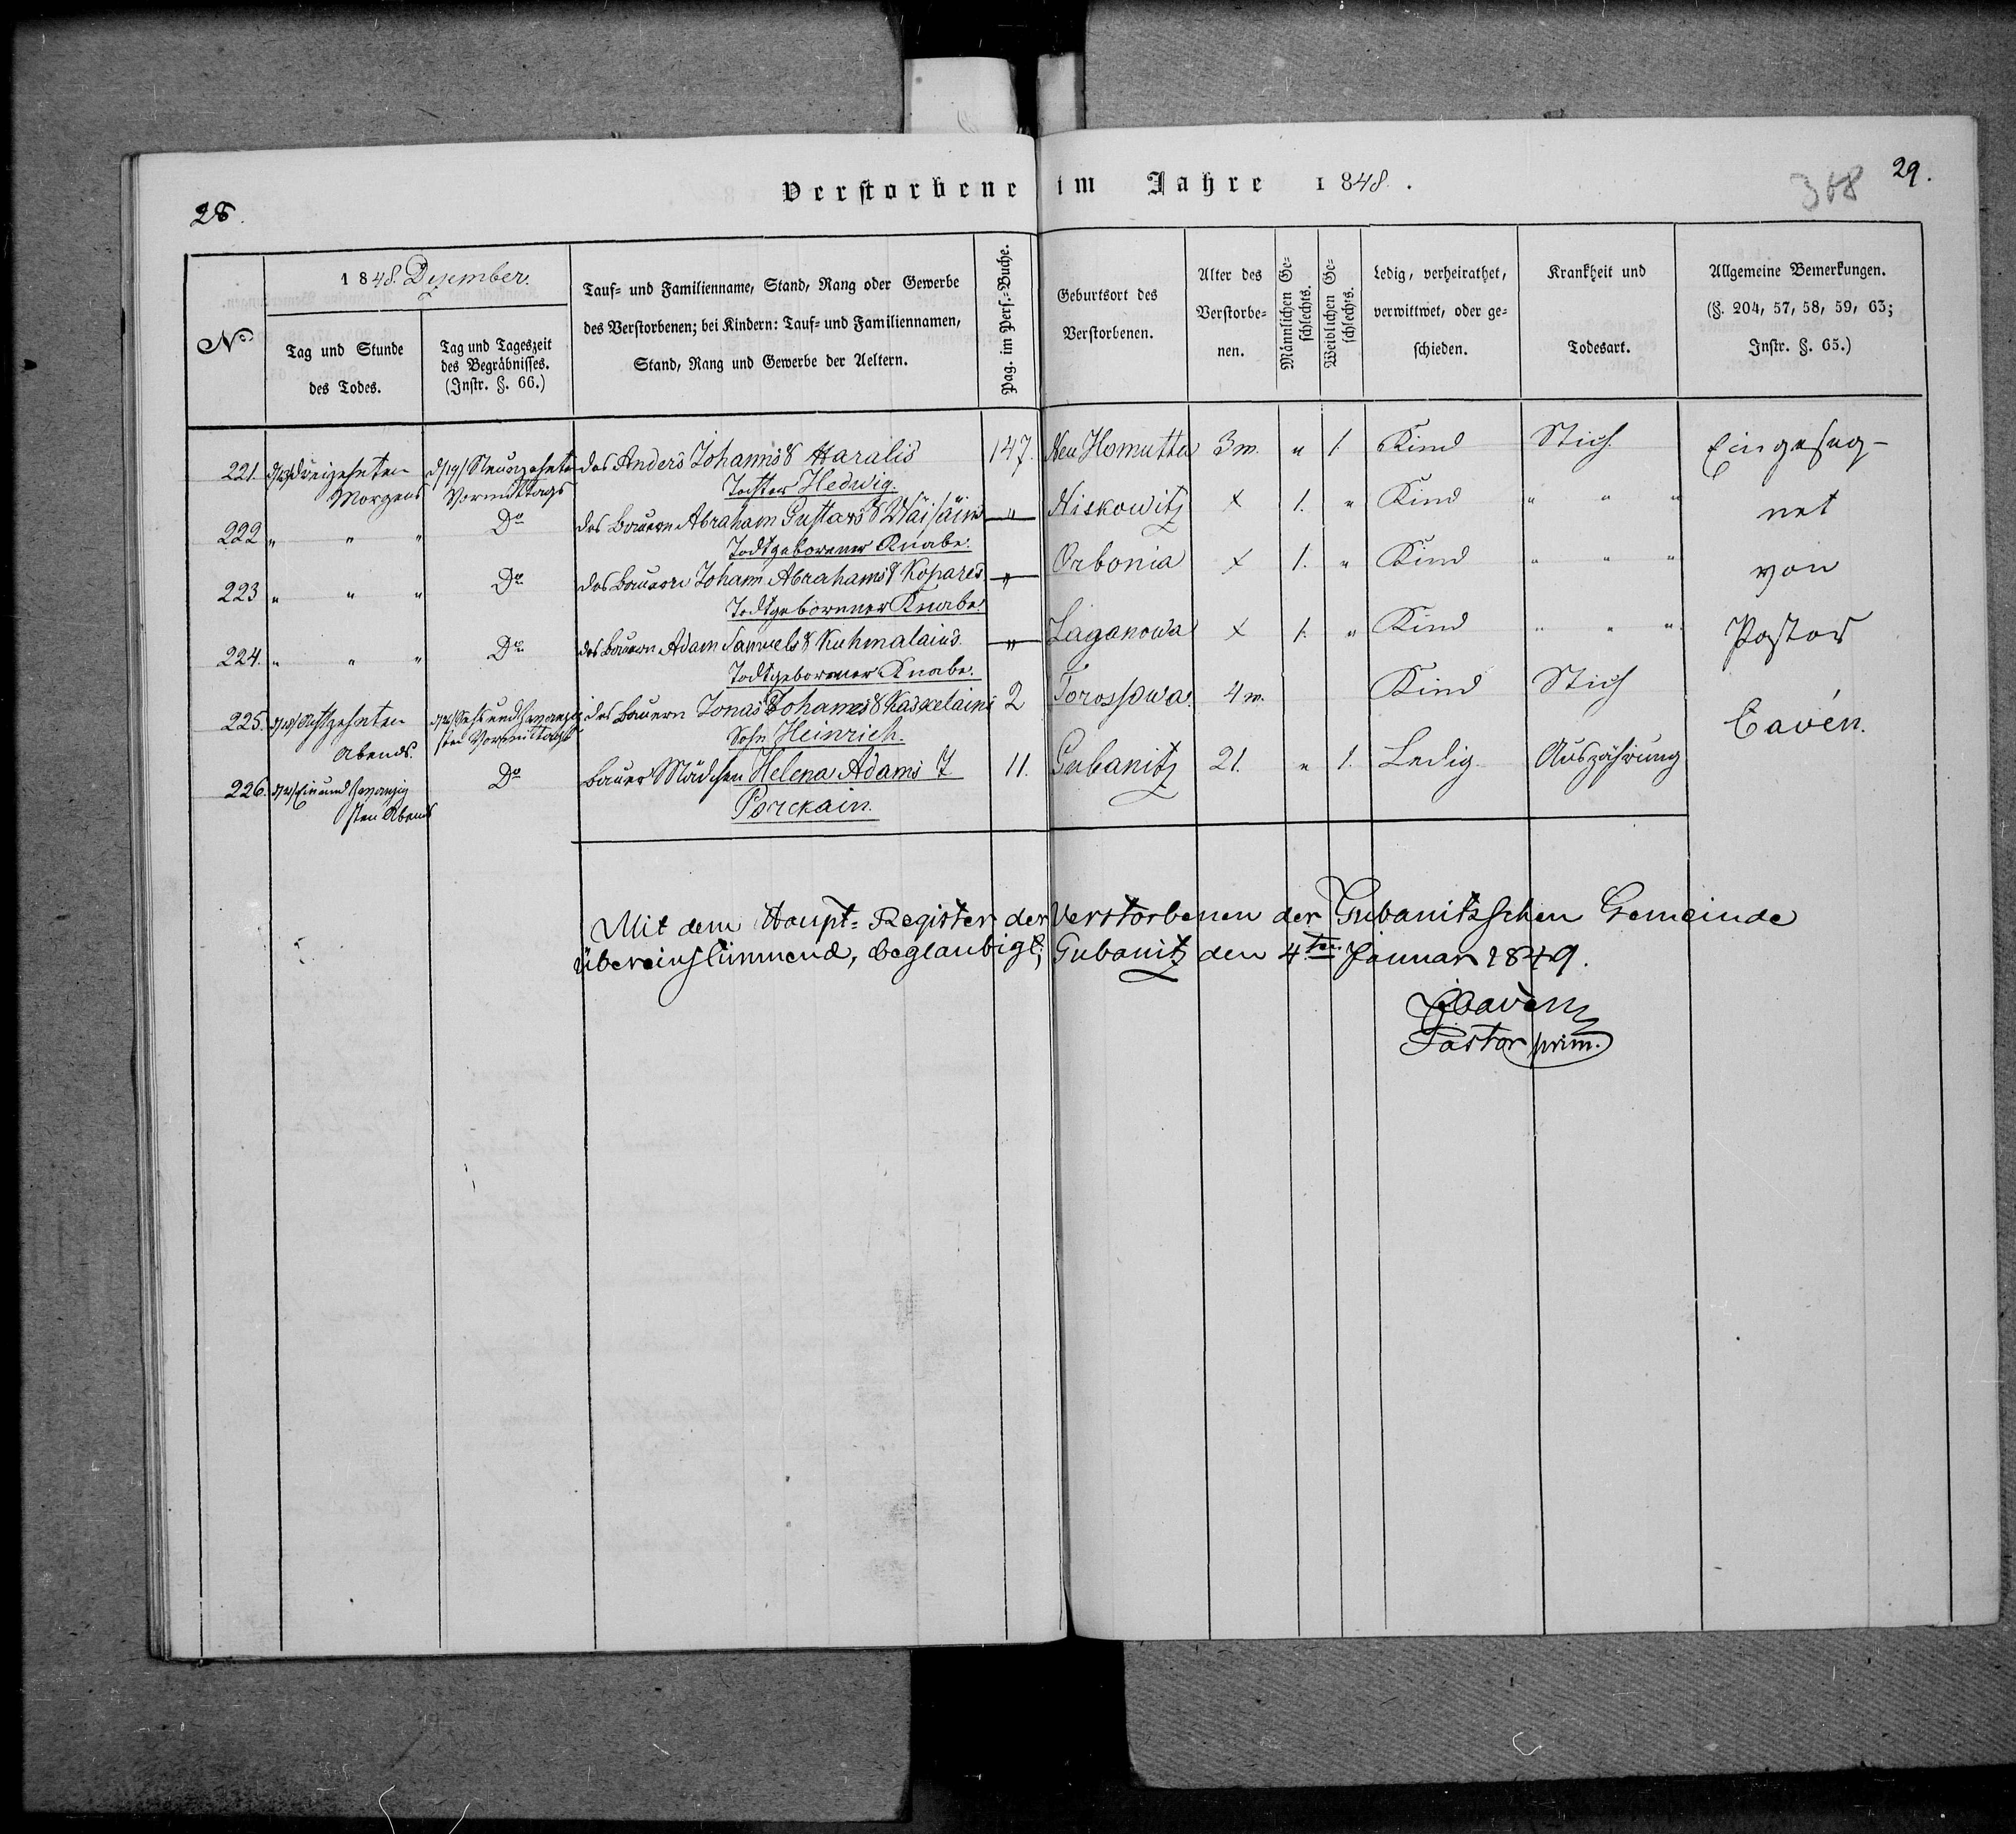 Verstorbene im Jahre 1848.
28.
29.
368
No
1848. Dezember.
Tag und Stunde des Todes.
Tag und Tageszeit des Begräbnisses. (Instr. §. 66.)
Tauf- und Familienname, Stand, Rang oder Gewerbe des Verstorbenen; bei Kindern: Tauf- und Familiennamen, Stand, Rang und Gewerbe der Aeltern.
Pag. im Pers.-Buche.
Geburtsort des Verstorbenen.
Alter des Verstorbenen.
Männlichen Geschlechts.
Weiblichen Geschlechts.
Ledig, verheirathet, verwittwet, oder geschieden.
Krankheit und Todesart.
Allgemeine Bemerkungen. (§. 204, 57, 58, 59, 63; Instr. §. 65.)
221. d/13/ dreizehnten d/19/ Neunzehnten des Anders Johannis S Haralis 147. Neu Homutta 3 m. " 1. Kind Stich Eingeseg-
Morgens Vormittags Tochter Hedwig.
222 " " " Do des Bauern Abraham Gustavs S Wäisäin " Niskowitz x 1. " Kind " " " net
Todtgeborener Knabe.
223 " " " Do des Bauern Johann Abrahams S Kopares " Orbonia x 1. " Kind " " " von
Todtgeborener Knabe.
224. " " " Do des Bauern Adam Samuels S Kuhmalains " Laganowa x 1. " Kind " " " Pastor
Todtgeborener Knabe.
225. d/18/ Achtzehnten des Bauern Jonas Johannes S Kaskelains 2 Torossowa 4 m. Kind Stich Cavén.
Abends. sten Vormittags Sohn Heinrich.
226. d/21/ Ein und zwanzig Do Bauer Mädchen Helena Adams T 11. Gubanitz 21. " 1. Ledig Auszährung
sten Abends Porckain.
Mit dem Haupt-Register der Verstorbenen der Gubanitzschen Gemeinde
übereinstimmend, beglaubigt; Gubanitz den 4ten Januar 1849.
Caven
Pastor prim.